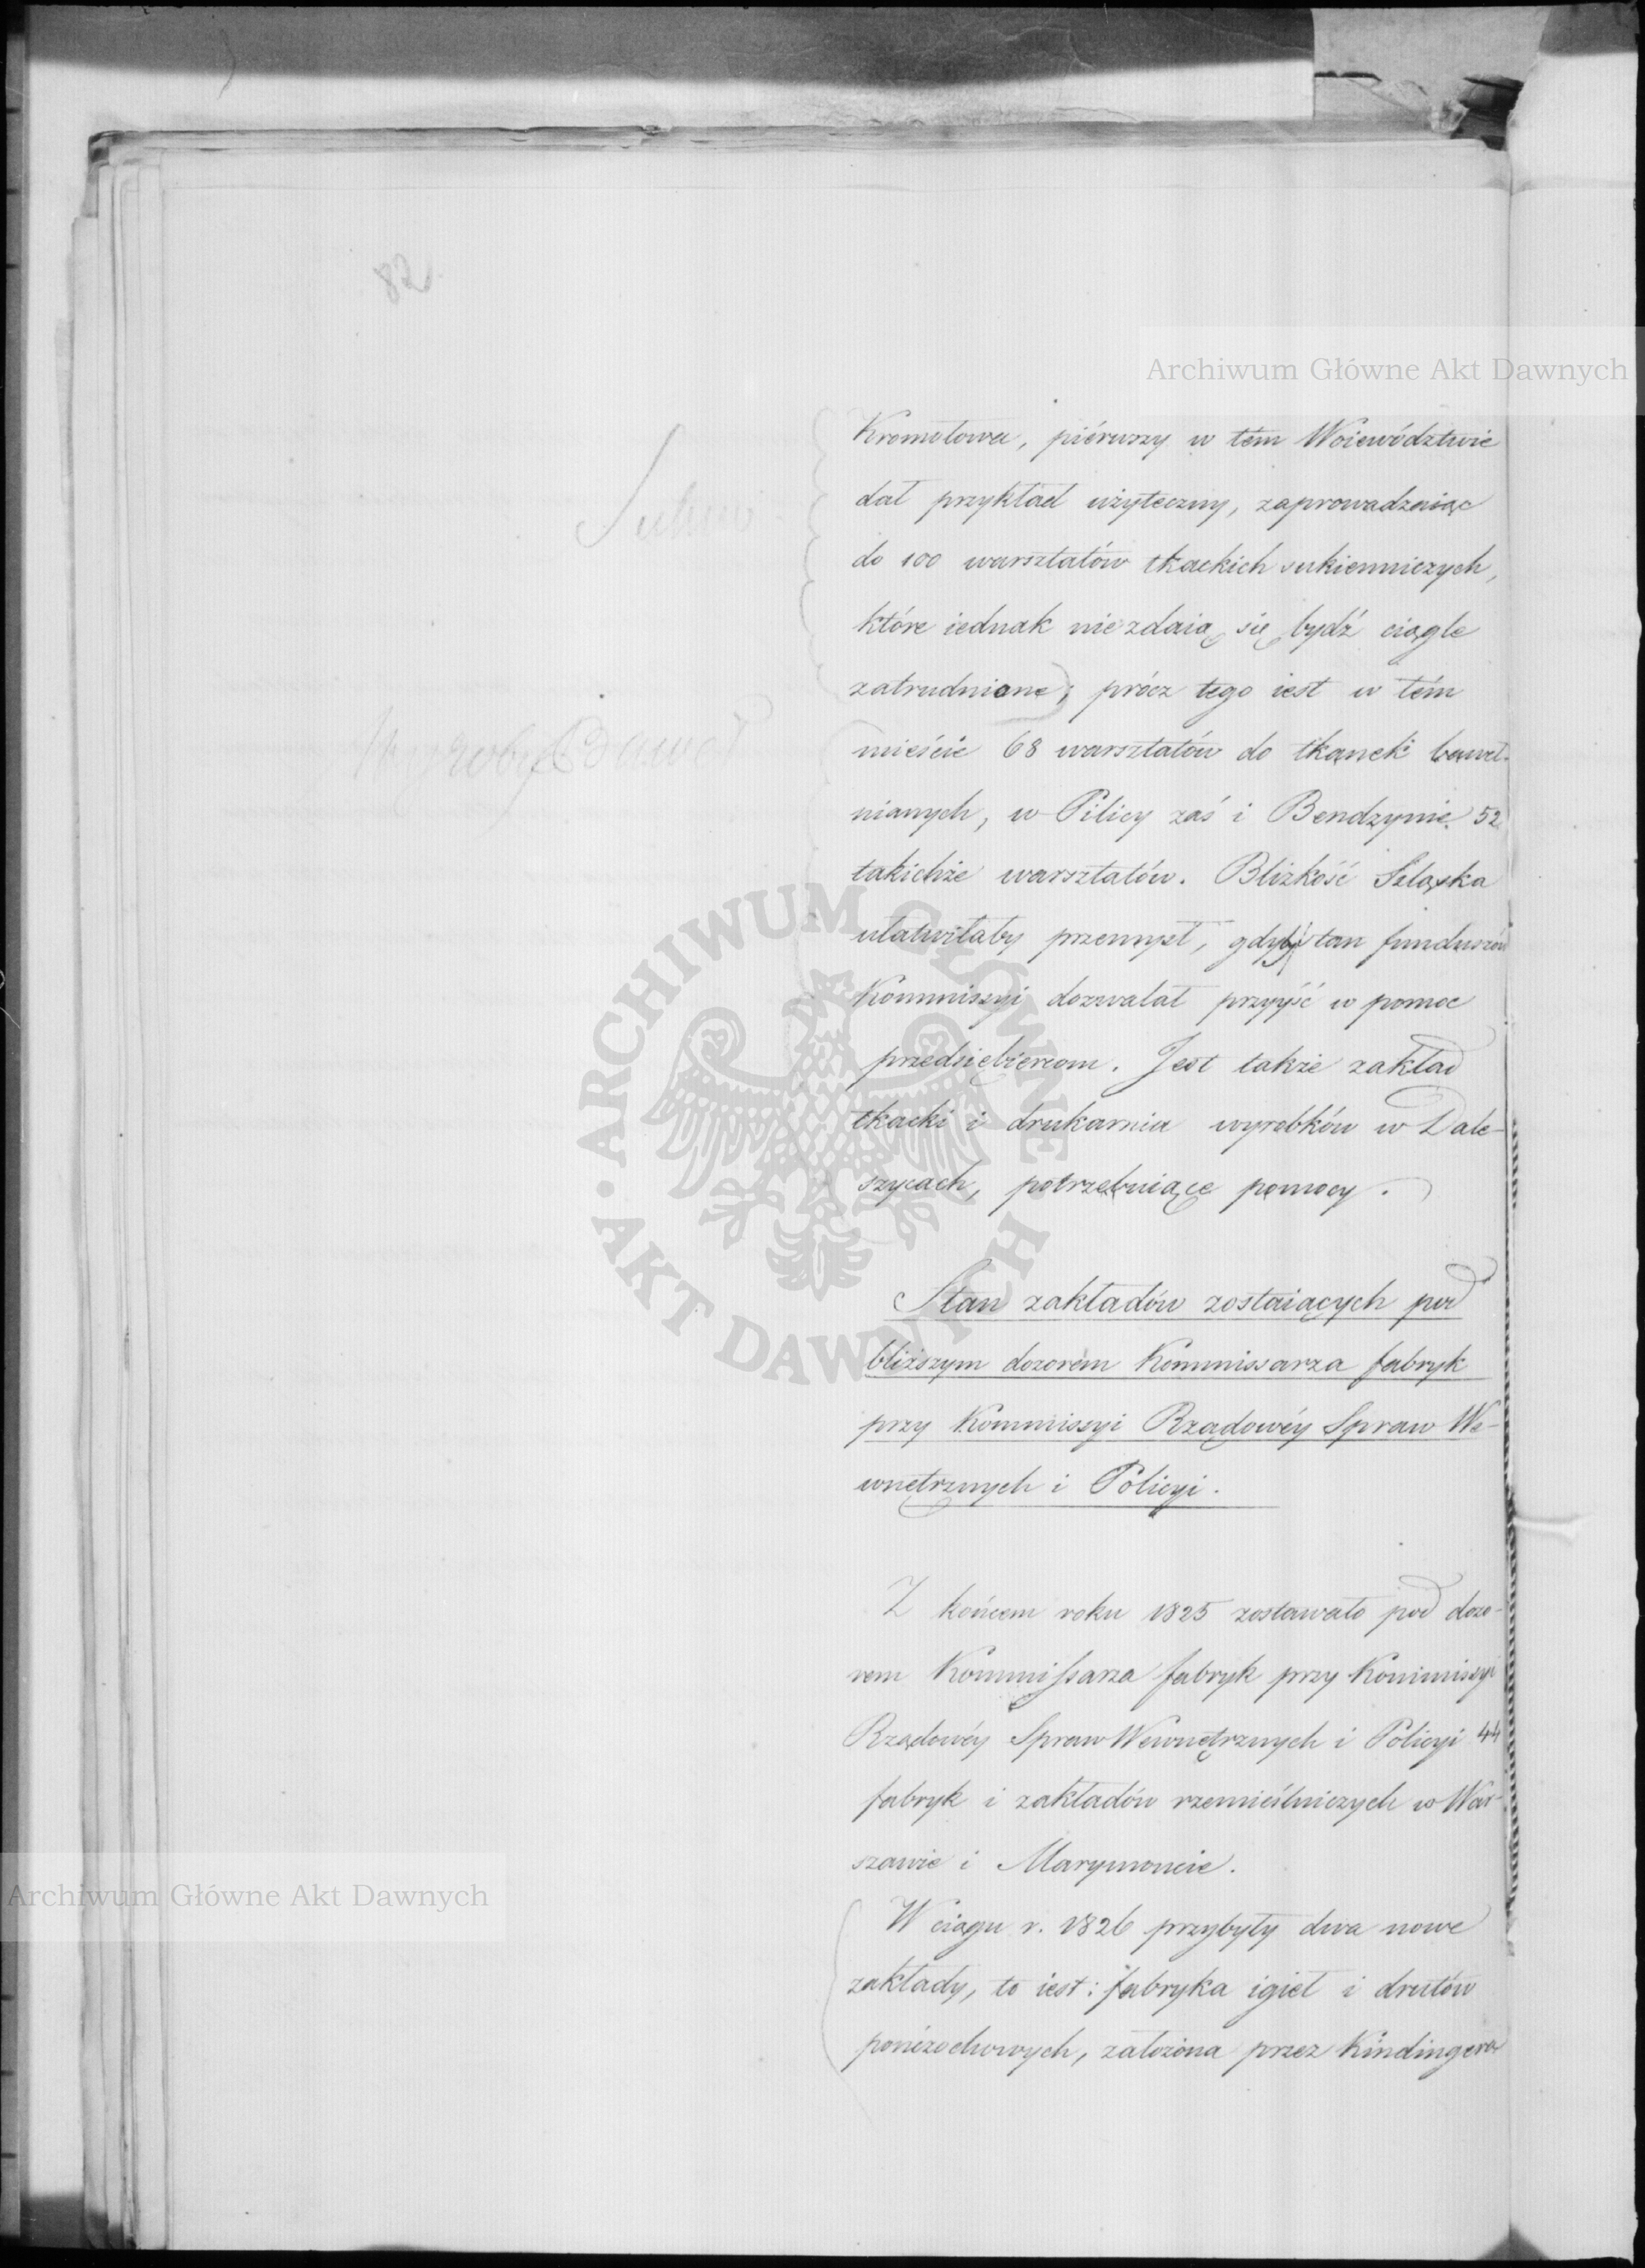 82.
Archiwum Główne Akt Dawnych
Kromołowa, piérwszy w tém Woiewództwie
dał przykład użyteczny, zaprowadzaiąc
do 100 warsztatów tkackich sukienniczych,
które iednak niezdaią się bydź ciągle
zatrudnione; prócz tego iest w tém
mieście 68 warsztatów do tkanek baweł-
nianych, w Pilicy zaś i Bendzynie 52
takichże warsztatów. Blizkość Szląska
ułatwiłaby przemysł, gdyby stan funduszów
Kommissyi dozwalał przyyść w pomoc
przedsiębiercom. Jest także zakład
tkacki i drukarnia wyrobków w Dale-
szycach, potrzebuiące pomocy.
Wyroby Baweł
ARCHIWUM GŁÓWNE AKT DAWNYCH
Stan zakładów zostaiących pod
bliższym dozorem Kommissarza fabryk
przy Kommissyi Rządowéy Spraw We-
wnętrznych i Policyi.
Z końcem roku 1825 zostawało pod dozo-
rem Kommissarza fabryk przy Kommissyi
Rządowéy Spraw Wewnętrznych i Policyi 44
fabryk i zakładów rzemieślniczych w War-
szawie i Marymoncie.
Archiwum Główne Akt Dawnych
W ciągu r. 1826 przybyły dwa nowe
zakłady, to iest: fabryka igieł i drutów
pończochowych, założona przez Kindingera